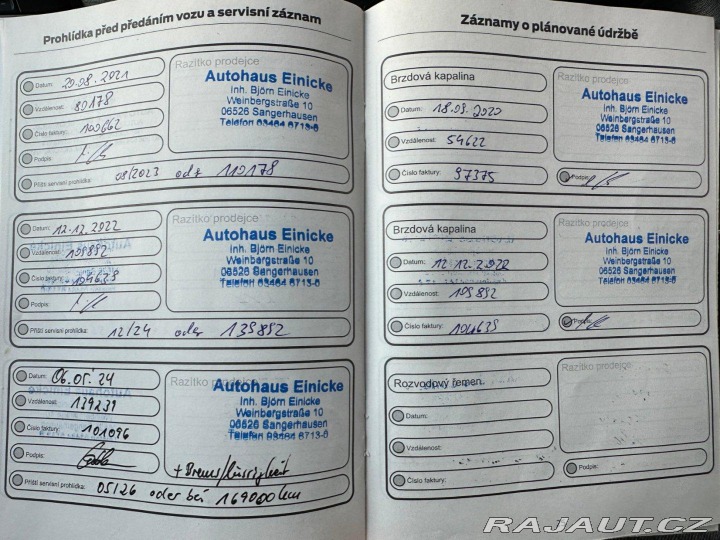 Prohlídka před předáním vozu a servisní záznam
Datum: 20.08.2021
Vzdálenost: 80178
Číslo faktury: 100662
Podpis:
Příští servisní prohlídka: 08/2023 oder 110178
Razítko prodejce
Autohaus Einicke
Inh. Björn Einicke
Weinbergstraße 10
06526 Sangerhausen
Telefon 03464 5713-0
Datum: 12.12.2022
Vzdálenost: 109892
Číslo faktury: 104639
Podpis:
Příští servisní prohlídka: 12/24 oder 139892
Razítko prodejce
Autohaus Einicke
Inh. Björn Einicke
Weinbergstraße 10
06526 Sangerhausen
Telefon 03464 5713-0
Datum: 06.05.24
Vzdálenost: 139231
Číslo faktury: 101096
Podpis:
Příští servisní prohlídka: 05/26 oder bei 169000 km
Razítko prodejce
Autohaus Einicke
Inh. Björn Einicke
Weinbergstraße 10
06526 Sangerhausen
Telefon 03464 5713-0
+ Bremsflüssigkeit
Záznamy o plánované údržbě
Brzdová kapalina
Datum: 18.09.2020
Vzdálenost: 54622
Číslo faktury: 97375
Razítko prodejce
Autohaus Einicke
Inh. Björn Einicke
Weinbergstraße 10
06526 Sangerhausen
Telefon 03464 5713-0
Podpis:
Brzdová kapalina
Datum: 12.12.2022
Vzdálenost: 109892
Číslo faktury: 104639
Razítko prodejce
Autohaus Einicke
Inh. Björn Einicke
Weinbergstraße 10
06526 Sangerhausen
Telefon 03464 5713-0
Podpis:
Rozvodový řemen
Datum:
Vzdálenost:
Číslo faktury:
Razítko prodejce
Podpis:
RAJAUT.CZ